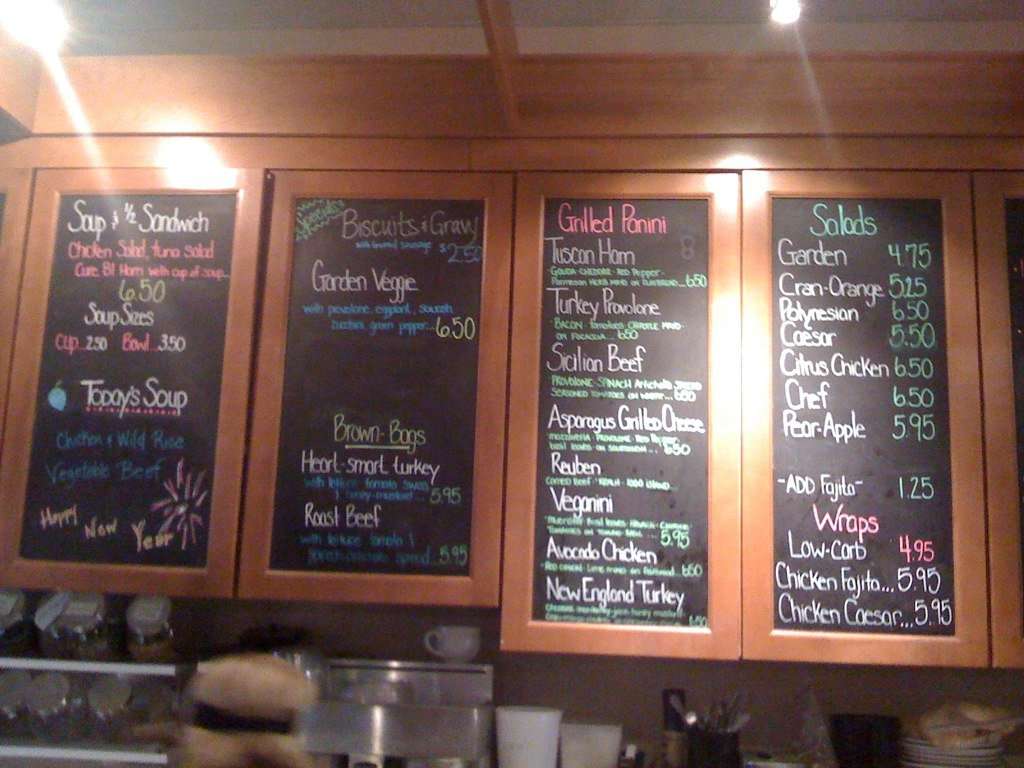 Soup & 1/2 Sandwich
Chicken Salad, tuna salad
Cure 81 Ham with cup of soup...
6.50
Soup Sizes
Cup...2.50 Bowl...3.50
Today's Soup
Chicken & Wild Rice
Vegetable Beef
Happy New Year
Specials
Biscuits & Gravy
with ground sausage $2.50
Garden Veggie
with provolone, eggplant, squash
zucchini, green pepper...6.50
Brown-Bags
Heart-smart turkey
with lettuce tomato swiss
& honey-mustard...5.95
Roast Beef
with lettuce tomato &
spread...5.95
Grilled Panini
Tuscan Ham
Gouda cheddar Red Pepper
Parmesan Herb mayo on 6.50
Turkey Provolone
Bacon tomatoes Chipotle Mayo
on Focaccia...6.50
Sicilian Beef
Provolone Spinach Artichoke spread
Seasoned tomatoes on 6.50
Asparagus Grilled Cheese
mozzarella Provolone Red Pepper
basil leaves on sourdough...6.50
Reuben
Corned Beef Kraut 1000 island
Veganini
basil leaves
Tomatoes on 5.95
Avocado Chicken
Red onion Lime mayo on 6.50
New England Turkey
honey mustard
6.50
Salads
Garden 4.75
Cran-Orange 5.25
Polynesian 6.50
Caesar 5.50
Citrus Chicken 6.50
Chef 6.50
Pear-Apple 5.95
-ADD Fajita- 1.25
Wraps
Low-carb 4.95
Chicken Fajita...5.95
Chicken Caesar...5.95